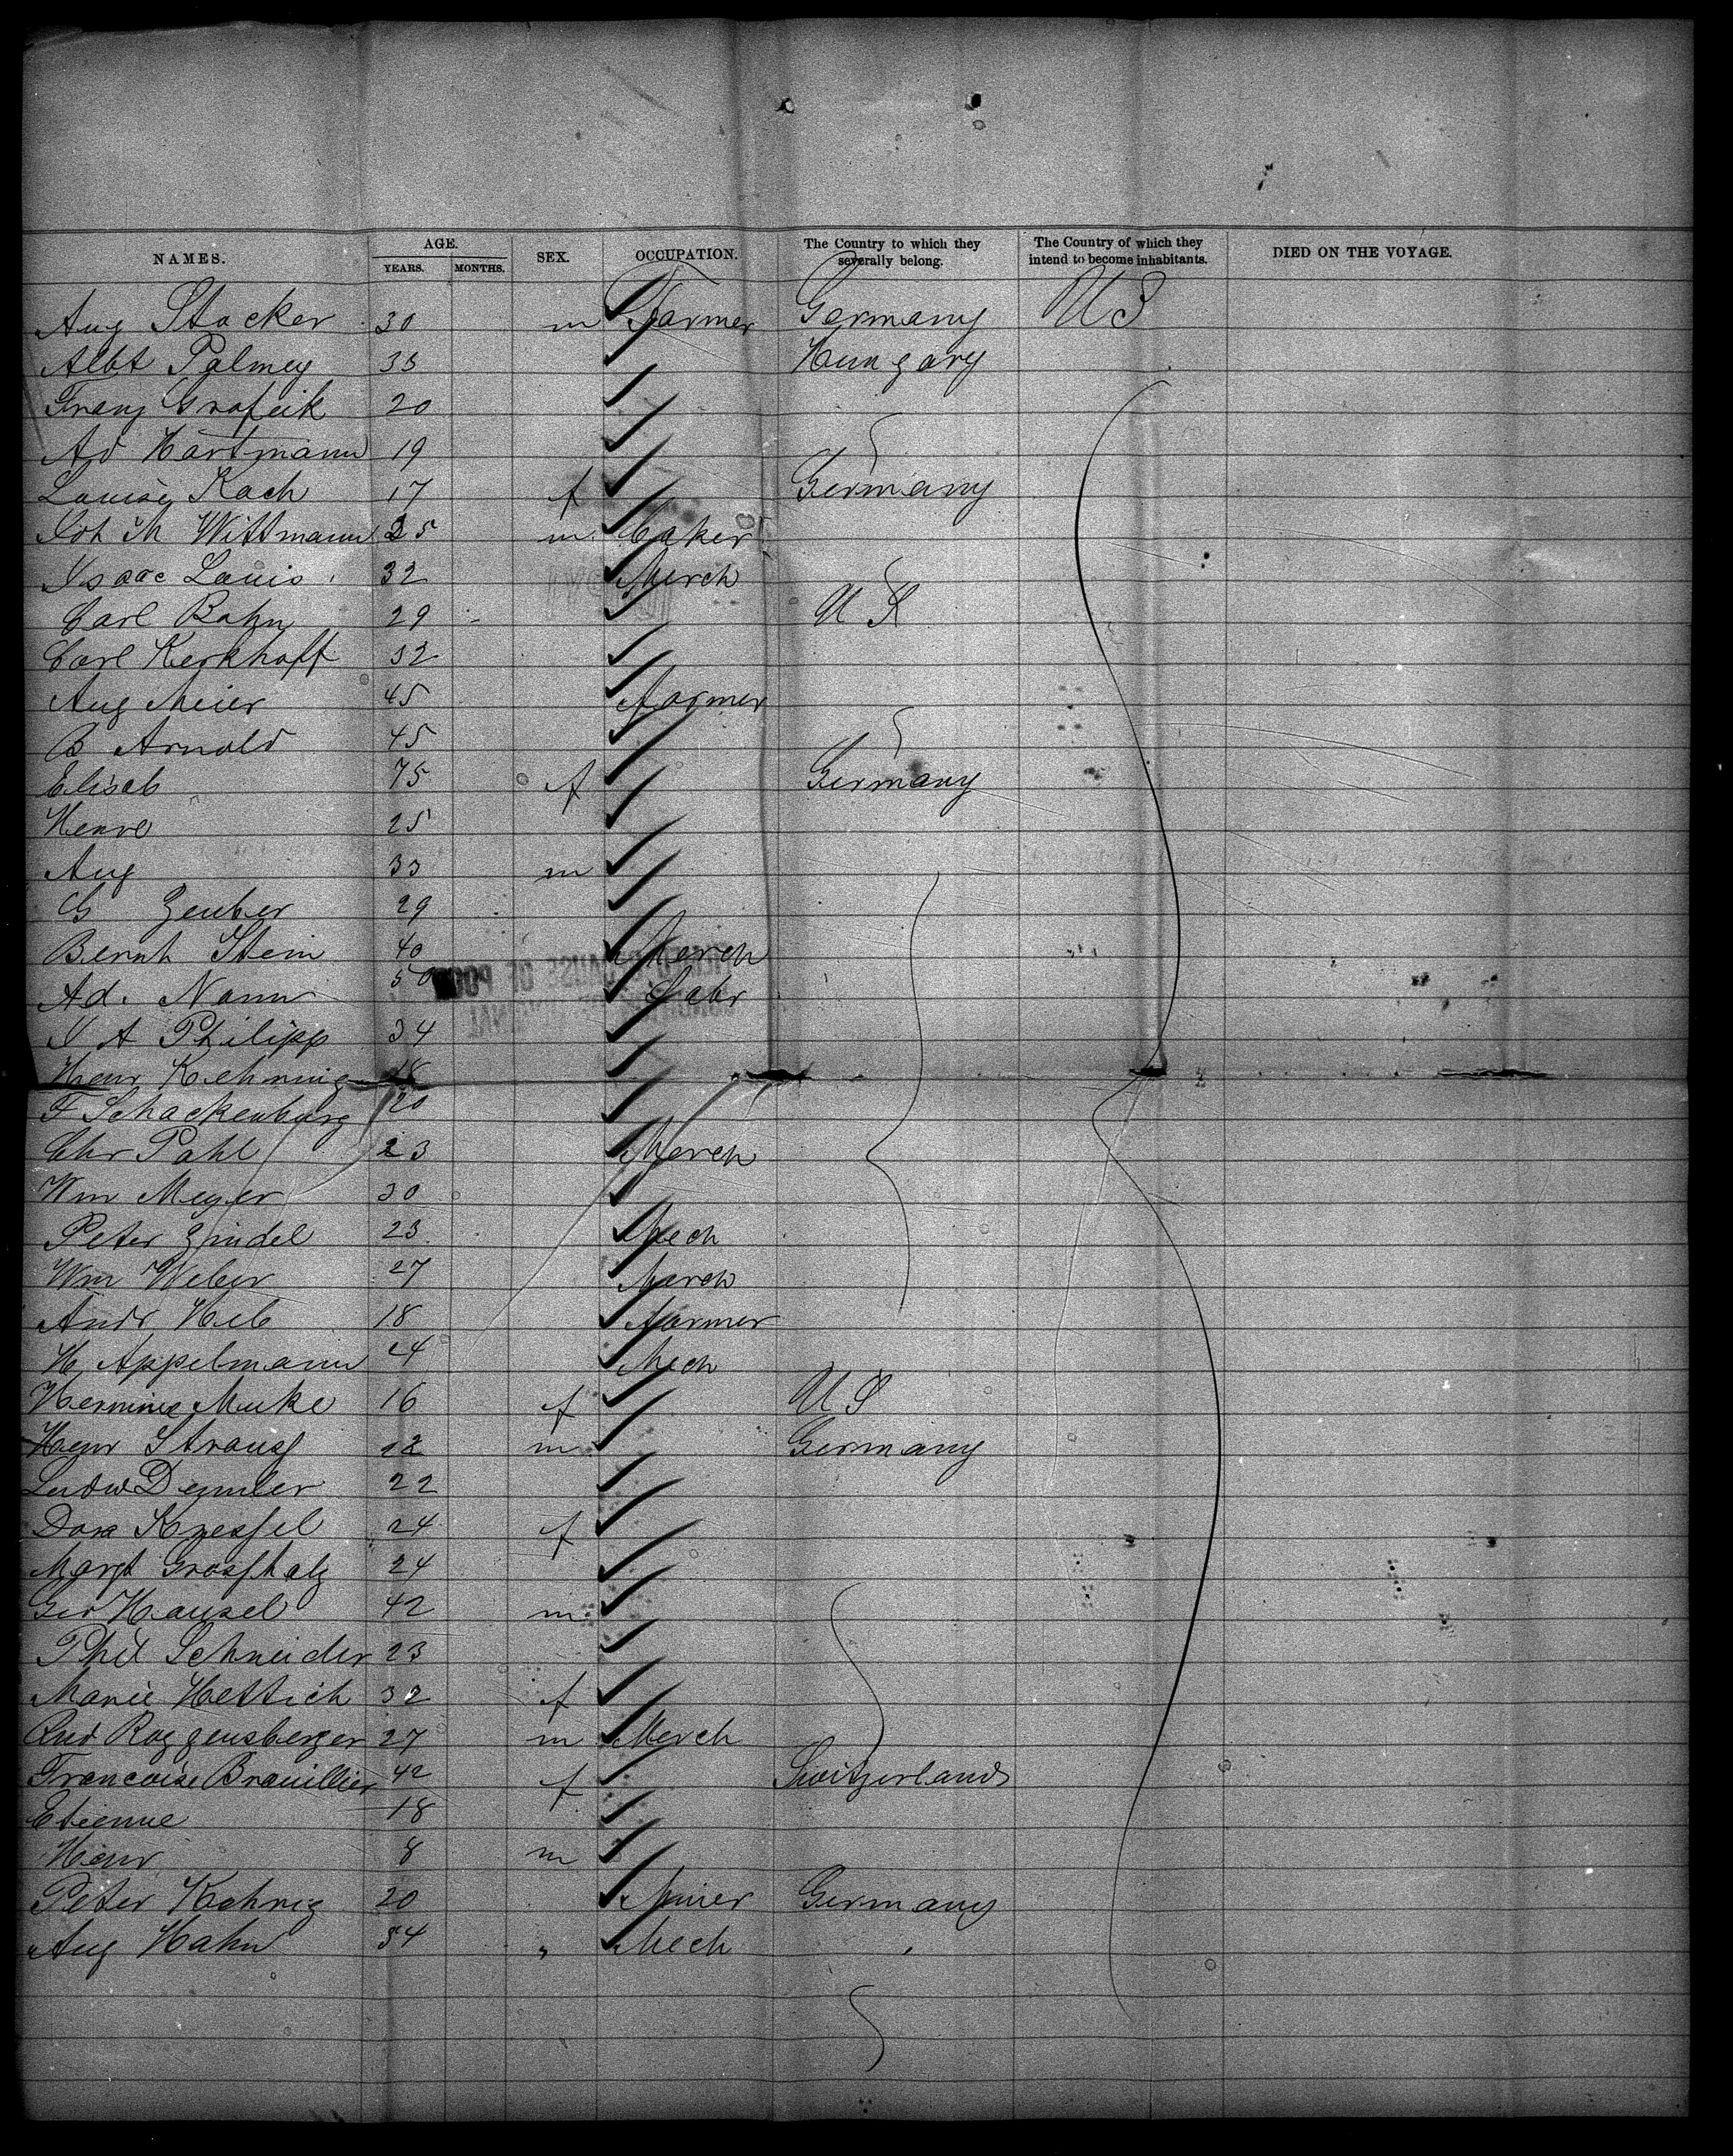 NAMES. AGE. SEX. OCCUPATION. The Country to which they severally belong. The Country of which they intend to become inhabitants. DIED ON THE VOYAGE.
YEARS. MONTHS.
Aug Stocker 30 m Farmer Germany US
Albt Palmey 33 Hungary
Franz 20
Ad Hartmann 19
Louise Koch 17 f Germany
Joh M Wittmann 25 m Baker
Isaac Louis 32 Merch
Carl Bahn 29 US
Carl Kerkhoff 32
Aug Meier 45 Farmer
B Arnold 45
Elisab 75 f Germany
25
Aug 33 m
G Zeuber 29
Bernh Stein 40 Merch
Ad. Nann 50 Labr
J A Philipp 34
Henr Kehrning 18
F Schackenburg 20
Chr Pahl 23 Merch
Wm Meyer 30
Peter Zindel 23 Mech
Wm Weber 27 Merch
Andr Heb 18 Farmer
H Appelmann 24 Mech
Hermine Muke 16 f US
Henr Strauss 22 m Germany
Ludw Demler 22
Dora Knessel 24 f
Margt 24
Geo Hansel 42 m
Phil Schneider 23
Marie Hettich 32 f
Rud Roggensberger 27 m Merch
Francoise Brouillier 42 f Switzerland
Etienne 18
Henr 8 m
Peter Kohnig 20 Miner Germany
Aug Hahn 34 " Mech "